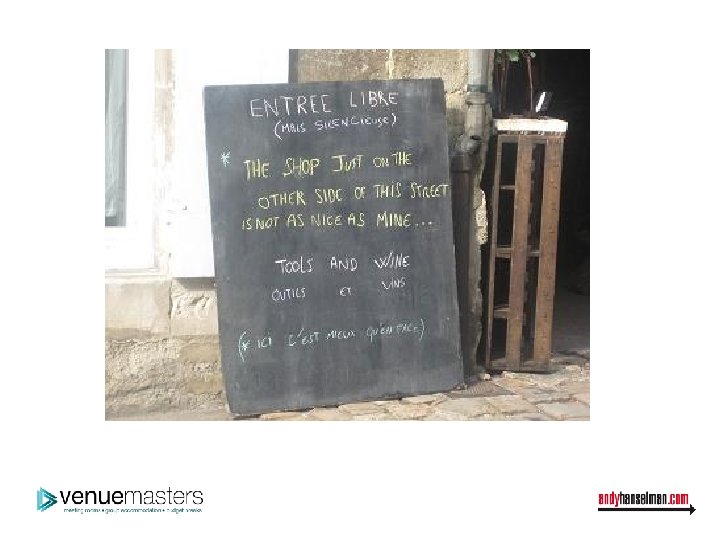 ENTREE LIBRE
(MAIS SILENCIEUSE)
* THE SHOP JUST ON THE
OTHER SIDE OF THIS STREET
IS NOT AS NICE AS MINE...
TOOLS AND WINE
OUTILS ET VINS
(* ICI C'EST MIEUX QU'EN FACE)
venuemasters
meeting rooms • group accommodation • budget breaks
andyhanselman.com